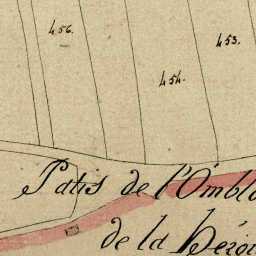 456.
453.
454.
Patis de l'Ombl
de la